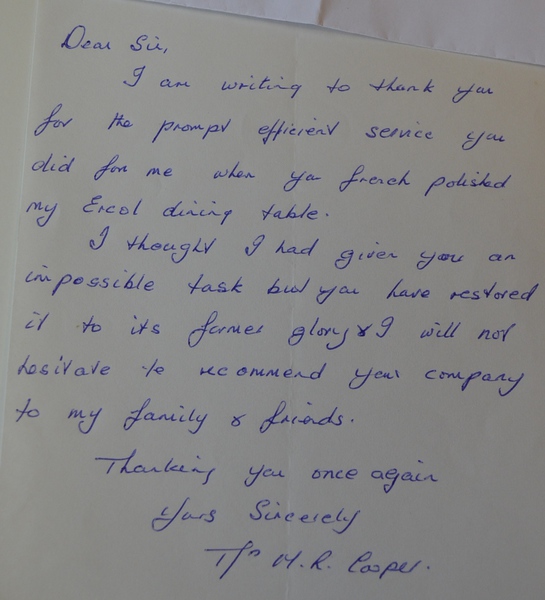 Dear Sir,
I am writing to thank you
for the prompt efficient service you
did for me when you french polished
my Ercol dining table.
I thought I had given you an
impossible task but you have restored
it to its former glory & I will not
hesitate to recommend your company
to my family & friends.
Thanking you once again
Yours Sincerely
M. R. Cooper.